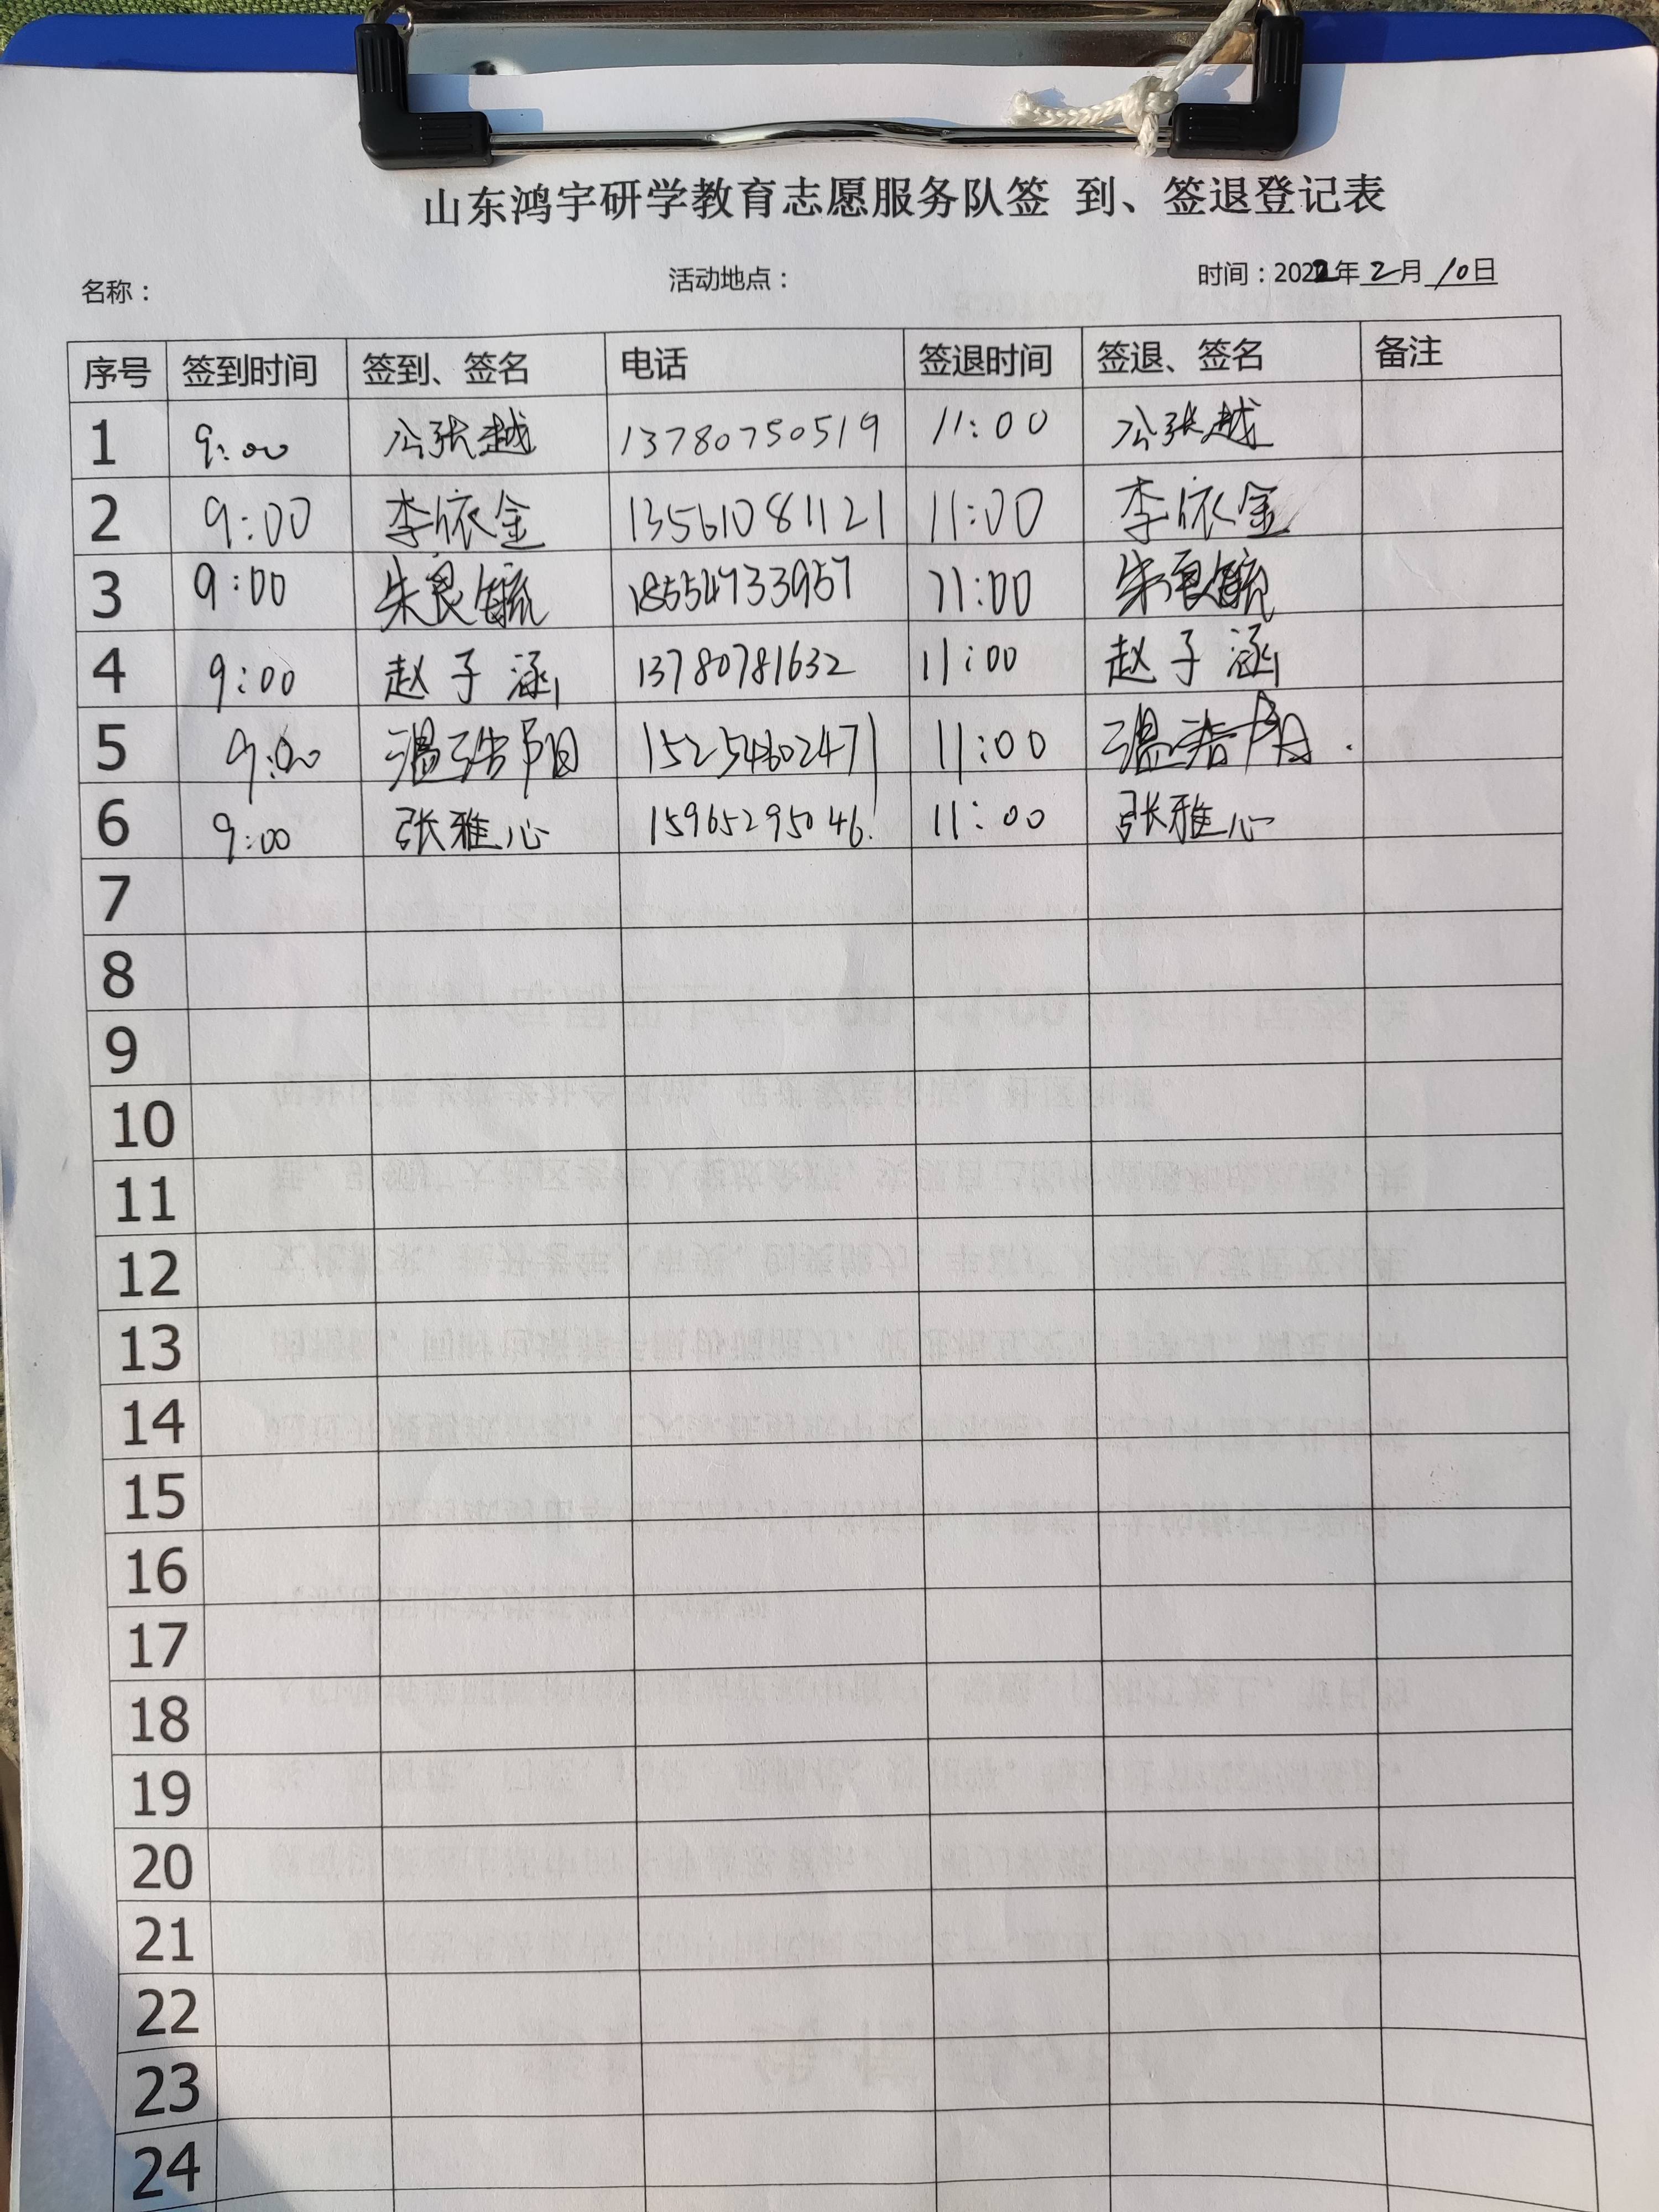 山东鸿宇研学教育志愿服务队签 到、签退登记表
名称： 活动地点： 时间：2022年2月10日
序号 签到时间 签到、签名 电话 签退时间 签退、签名 备注
1 9:00 公张越 13780750519 11:00 公张越
2 9:00 李依金 13561081121 11:00 李依金
3 9:00 朱良毓 18554733957 11:00 朱良毓
4 9:00 赵子涵 13780781632 11:00 赵子涵
5 9:00 温浩阳 15254602471 11:00 温浩阳
6 9:00 张雅心 15965295046 11:00 张雅心
7
8
9
10
11
12
13
14
15
16
17
18
19
20
21
22
23
24